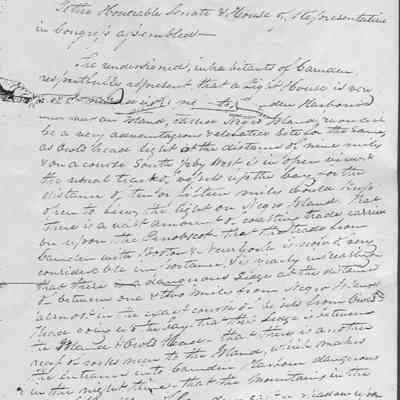 To the Honorable Senate & House of Representative
in Congress assembled—
The undersigned, inhabitants of Camden
respectfully represent, that a Light House is very
den Harbour
an Island, called Negro Island, would
be a very advantageous & elevation site for the same,
as Owls head light at the distance of nine miles
& on a course South by West is in open view, &
the usual tracks, of vessels up the bay for the
distance of ten or fifteen miles should keep
open to being the light on Negro Island. That
there is a vast amount of coasting trade carried
on upon the Penobscot. that the trade from
Camden with Boston & New York is now of very
considerable importance, & is yearly increasing
that there is a dangerous Ledge at the distance
of between one & two miles from Negro Island
almost in the exact course of vessels from Owls
head going into the bay. that the Ledge is between
the Island & Owls Head. that there is another
reef of rocks near to the Island, which makes
the entrance into Camden Harbour dangerous
in the night time. that the Mountains in the